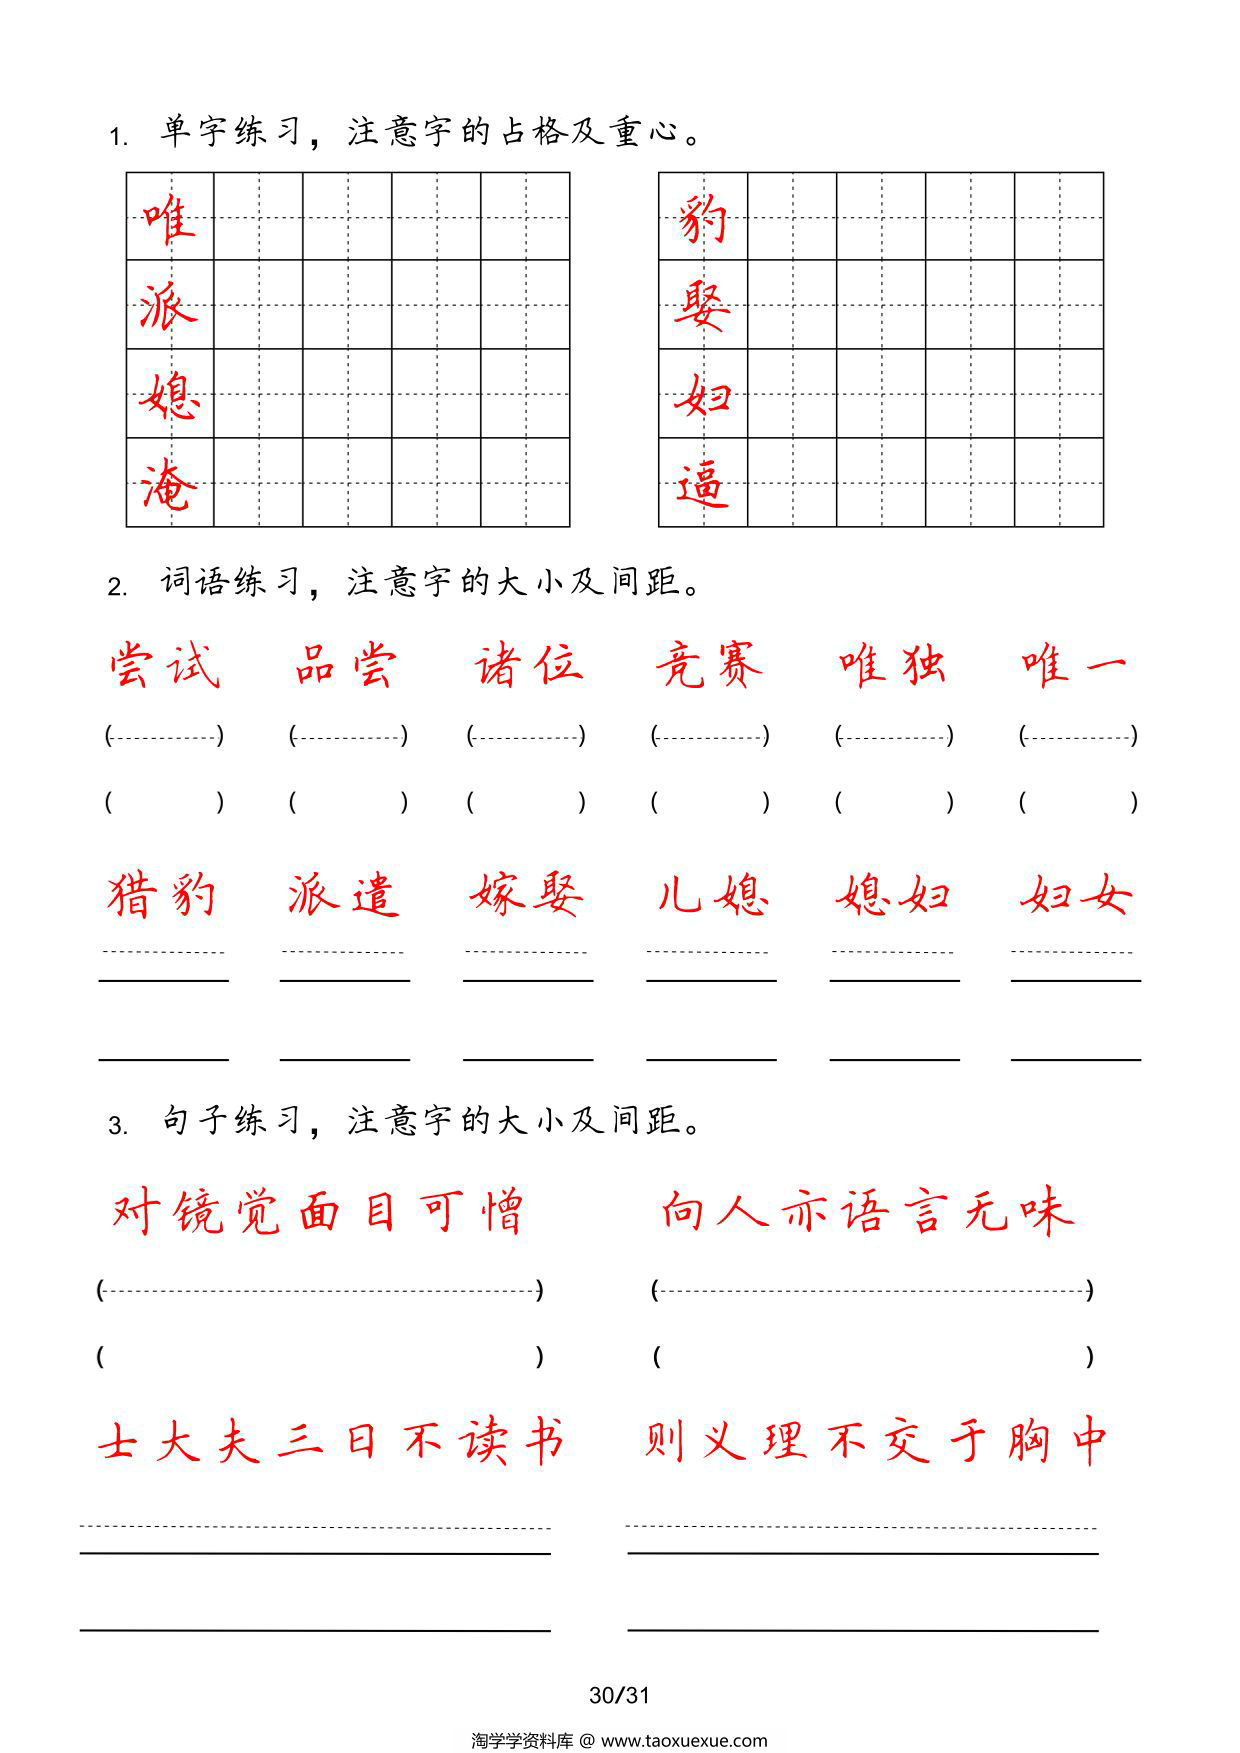 1. 单字练习，注意字的占格及重心。
唯 豹
派 娶
媳 妇
淹 逼
2. 词语练习，注意字的大小及间距。
尝试 品尝 诸位 竞赛 唯独 唯一
( ) ( ) ( ) ( ) ( ) ( )
( ) ( ) ( ) ( ) ( ) ( )
猎豹 派遣 嫁娶 儿媳 媳妇 妇女
3. 句子练习，注意字的大小及间距。
对镜觉面目可憎 向人亦语言无味
( ) ( )
( ) ( )
士大夫三日不读书 则义理不交于胸中
30/31
淘学学资料库 @ www.taoxuexue.com